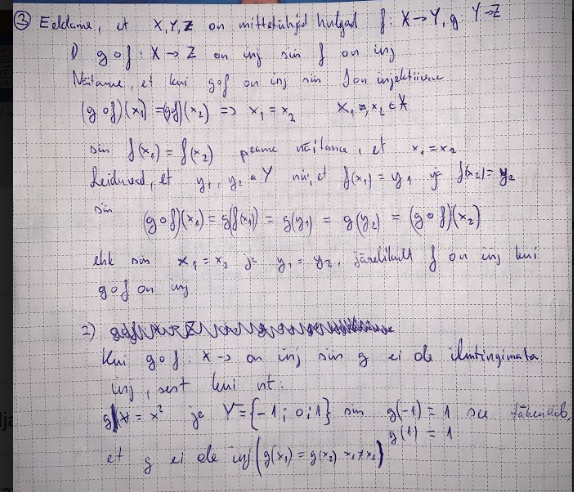 ③ Eeldame, et X,Y,Z on mittetühjad hulgad f: X→Y, g Y→Z
1) g∘f : X→Z on inj siis f on inj
Näitame, et kui g∘f on inj siis f on injektiivne
(g∘f)(x₁) = (g∘f)(x₂) => x₁ = x₂ x₁, x₂ ∈ X
siis f(x₁) = f(x₂) peame näitama, et x₁ = x₂
Leiduvad, et y₁, y₂ ∈ Y nii, et f(x₁) = y₁ ja f(x₂) = y₂
siis
(g∘f)(x₁) = g(f(x₁)) = g(y₁) = g(y₂) = (g∘f)(x₂)
ehk siis x₁ = x₂ ja y₁ = y₂, järelikult f on inj kui
g∘f on inj
2)
Kui g∘f : X→ on inj siis g ei ole ilmtingimata
inj, sest kui nt:
= x² ja Y = {-1; 0; 1} siis g(-1) = 1 see tähendab,
g(1) = 1
et g ei ole inj (g(x₁) = g(x₂)